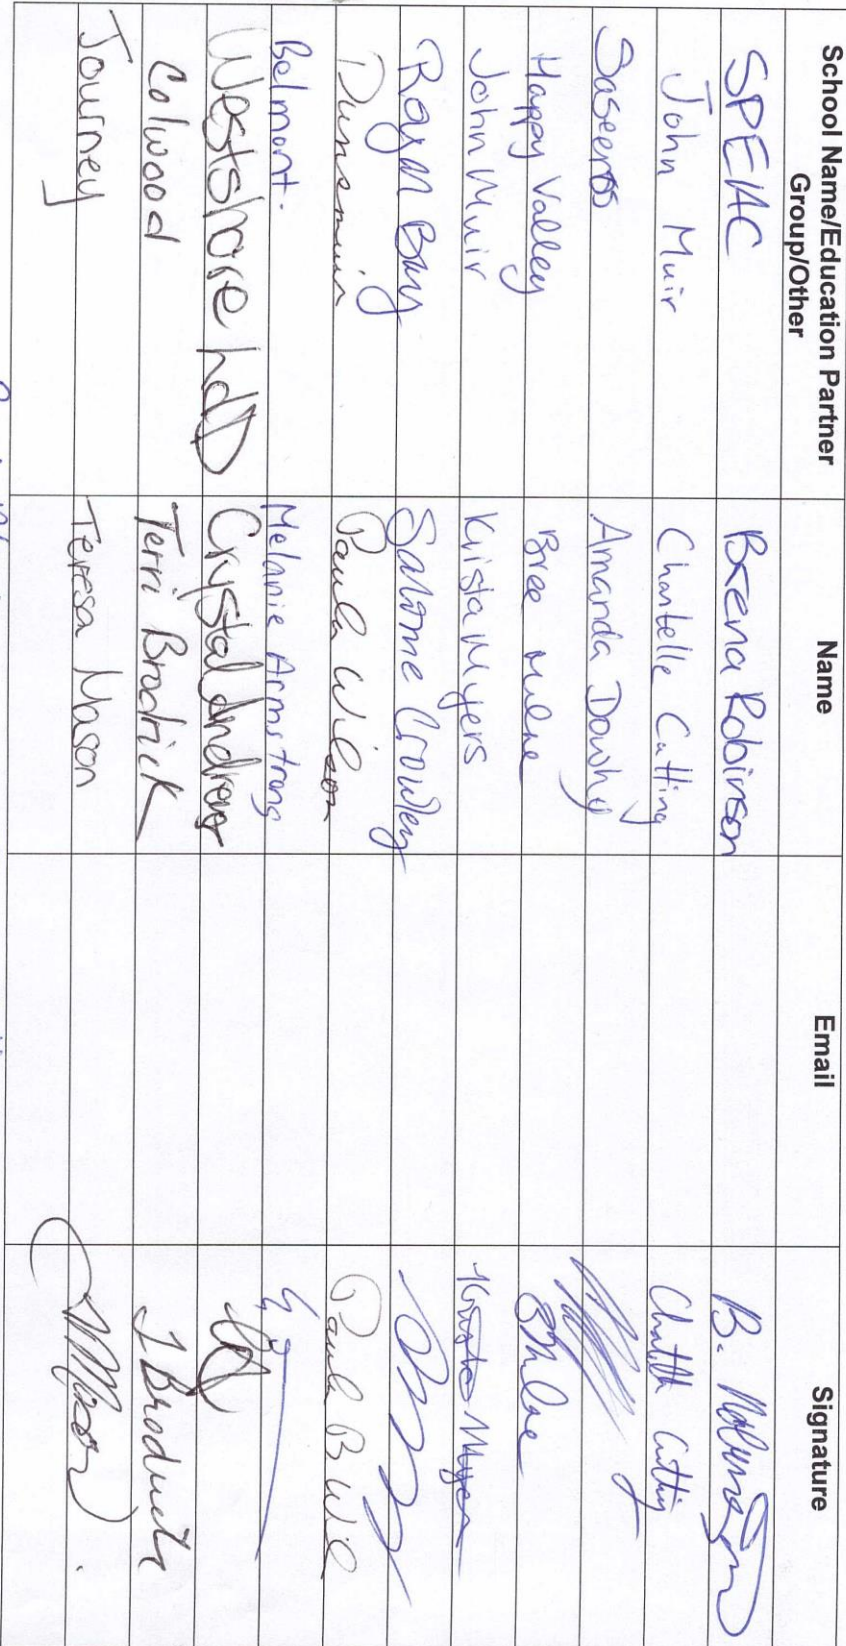 School Name/Education Partner Group/Other Name Email Signature
SPEAC Brena Robinson B. Robinson
John Muir Chantelle Cutting Chantelle Cutting
Saseenos Amanda Dowhy
Happy Valley Bree Milne BMilne
John Muir Krista Myers Krista Myers
Royal Bay Salome Crowley
Dunsmuir Paula Wilson Paula B Wil
Belmont. Melanie Armstrong
Westshore Crystal
Colwood Terri Brodrick T Brodrick
Journey Teresa Mason TMason